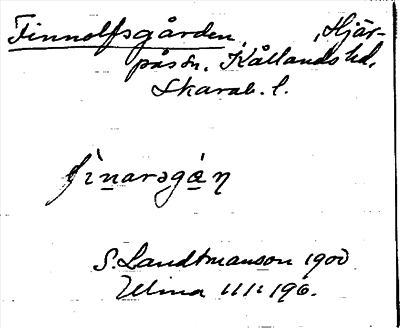 Finnolfsgården, Hjär-
pås sn, Kållands hd,
Skarab. l.
fìnarəgá̱n
S. Landtmanson 1900
Ulma 11:1:196.